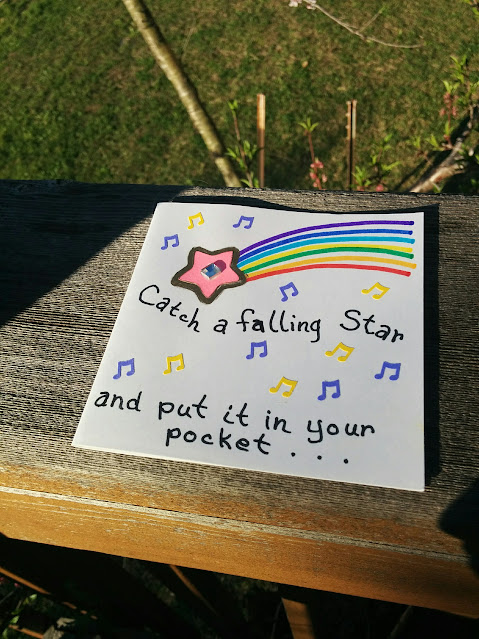 Catch a falling Star
and put it in your
pocket . . .